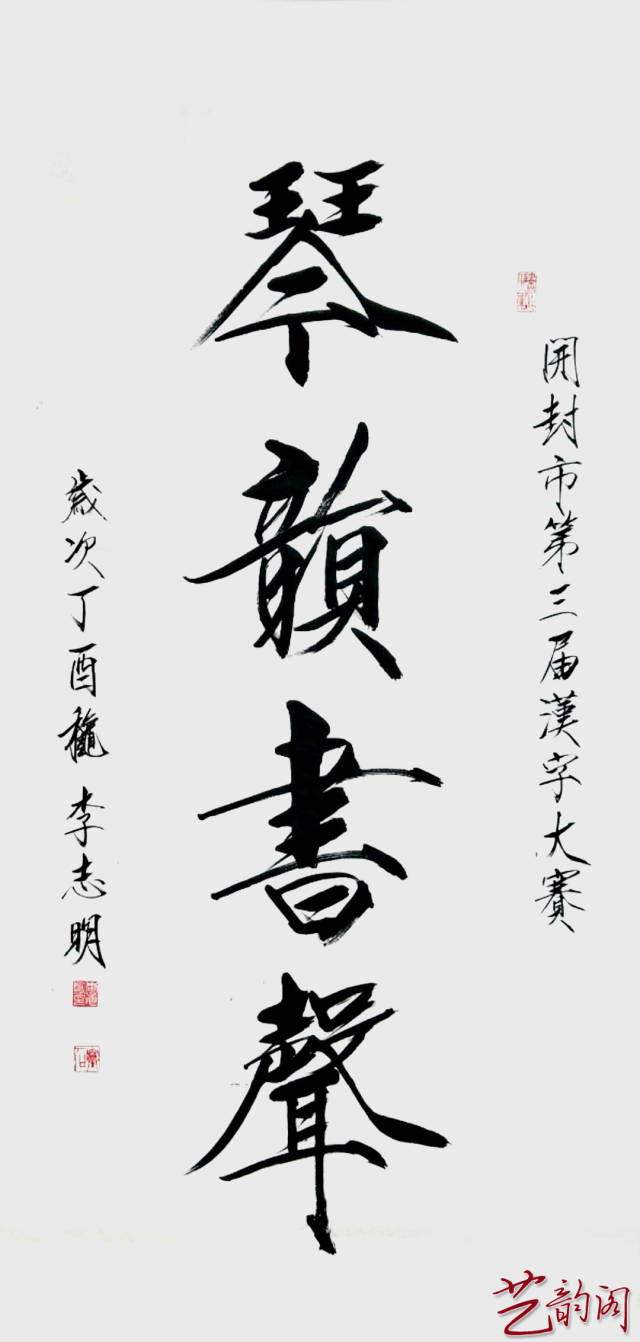 開封市第三届漢字大賽
琴韻書聲
歲次丁酉穐 李志明
艺韵阁